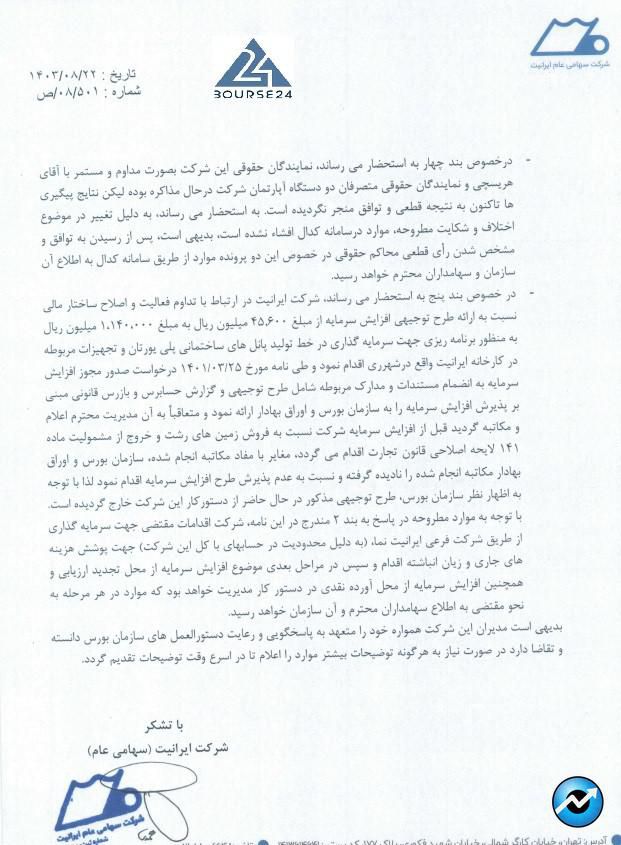 شرکت سهامی عام ایرانیت
BOURSE24
تاریخ : ۱۴۰۳/۰۸/۲۲
شماره : ۰۸/۵۰۱/ص
- درخصوص بند چهار به استحضار می رساند، نمایندگان حقوقی این شرکت بصورت مداوم و مستمر با آقای
هریسچی و نمایندگان حقوقی متصرفان دو دستگاه آپارتمان شرکت درحال مذاکره بوده لیکن نتایج پیگیری
ها تاکنون به نتیجه قطعی و توافق منجر نگردیده است. به استحضار می رساند، به دلیل تغییر در موضوع
اختلاف و شکایت مطروحه، موارد درسامانه کدال افشاء نشده است، بدیهی است، پس از رسیدن به توافق و
مشخص شدن رأی قطعی محاکم حقوقی در خصوص این دو پرونده موارد از طریق سامانه کدال به اطلاع آن
سازمان و سهامداران محترم خواهد رسید.
- در خصوص بند پنج به استحضار می رساند، شرکت ایرانیت در ارتباط با تداوم فعالیت و اصلاح ساختار مالی
نسبت به ارائه طرح توجیهی افزایش سرمایه از مبلغ ۴۵,۶۰۰ میلیون ریال به مبلغ ۱,۱۴۰,۰۰۰ میلیون ریال
به منظور برنامه ریزی جهت سرمایه گذاری در خط تولید پانل های ساختمانی پلی یورتان و تجهیزات مربوطه
در کارخانه ایرانیت واقع درشهرری اقدام نمود و طی نامه مورخ ۱۴۰۱/۰۳/۲۵ درخواست صدور مجوز افزایش
سرمایه به انضمام مستندات و مدارک مربوطه شامل طرح توجیهی و گزارش حسابرس و بازرس قانونی مبنی
بر پذیرش افزایش سرمایه را به سازمان بورس و اوراق بهادار ارائه نمود و متعاقباً به آن مدیریت محترم اعلام
و مکاتبه گردید قبل از افزایش سرمایه شرکت نسبت به فروش زمین های رشت و خروج از مشمولیت ماده
۱۴۱ لایحه اصلاحی قانون تجارت اقدام می گردد، مغایر با مفاد مکاتبه انجام شده، سازمان بورس و اوراق
بهادار مکاتبه انجام شده را نادیده گرفته و نسبت به عدم پذیرش طرح افزایش سرمایه اقدام نمود لذا با توجه
به اظهار نظر سازمان بورس، طرح توجیهی مذکور در حال حاضر از دستورکار این شرکت خارج گردیده است.
با توجه به موارد مطروحه در پاسخ به بند ۲ مندرج در این نامه، شرکت اقدامات مقتضی جهت سرمایه گذاری
از طریق شرکت فرعی ایرانیت نما، (به دلیل محدودیت در حسابهای با کل این شرکت) جهت پوشش هزینه
های جاری و زیان انباشته اقدام و سپس در مراحل بعدی موضوع افزایش سرمایه از محل تجدید ارزیابی و
همچنین افزایش سرمایه از محل آورده نقدی در دستور کار مدیریت خواهد بود که موارد در هر مرحله به
نحو مقتضی به اطلاع سهامداران محترم و آن سازمان خواهد رسید.
بدیهی است مدیران این شرکت همواره خود را متعهد به پاسخگویی و رعایت دستورالعمل های سازمان بورس دانسته
و تقاضا دارد در صورت نیاز به هرگونه توضیحات بیشتر موارد را اعلام تا در اسرع وقت توضیحات تقدیم گردد.
با تشکر
شرکت ایرانیت (سهامی عام)
شرکت سهامی عام ایرانیت
آدرس: تهران، خیابان کارگر شمالی، خیابان شهید فکوری، پلاک ۱۷۷